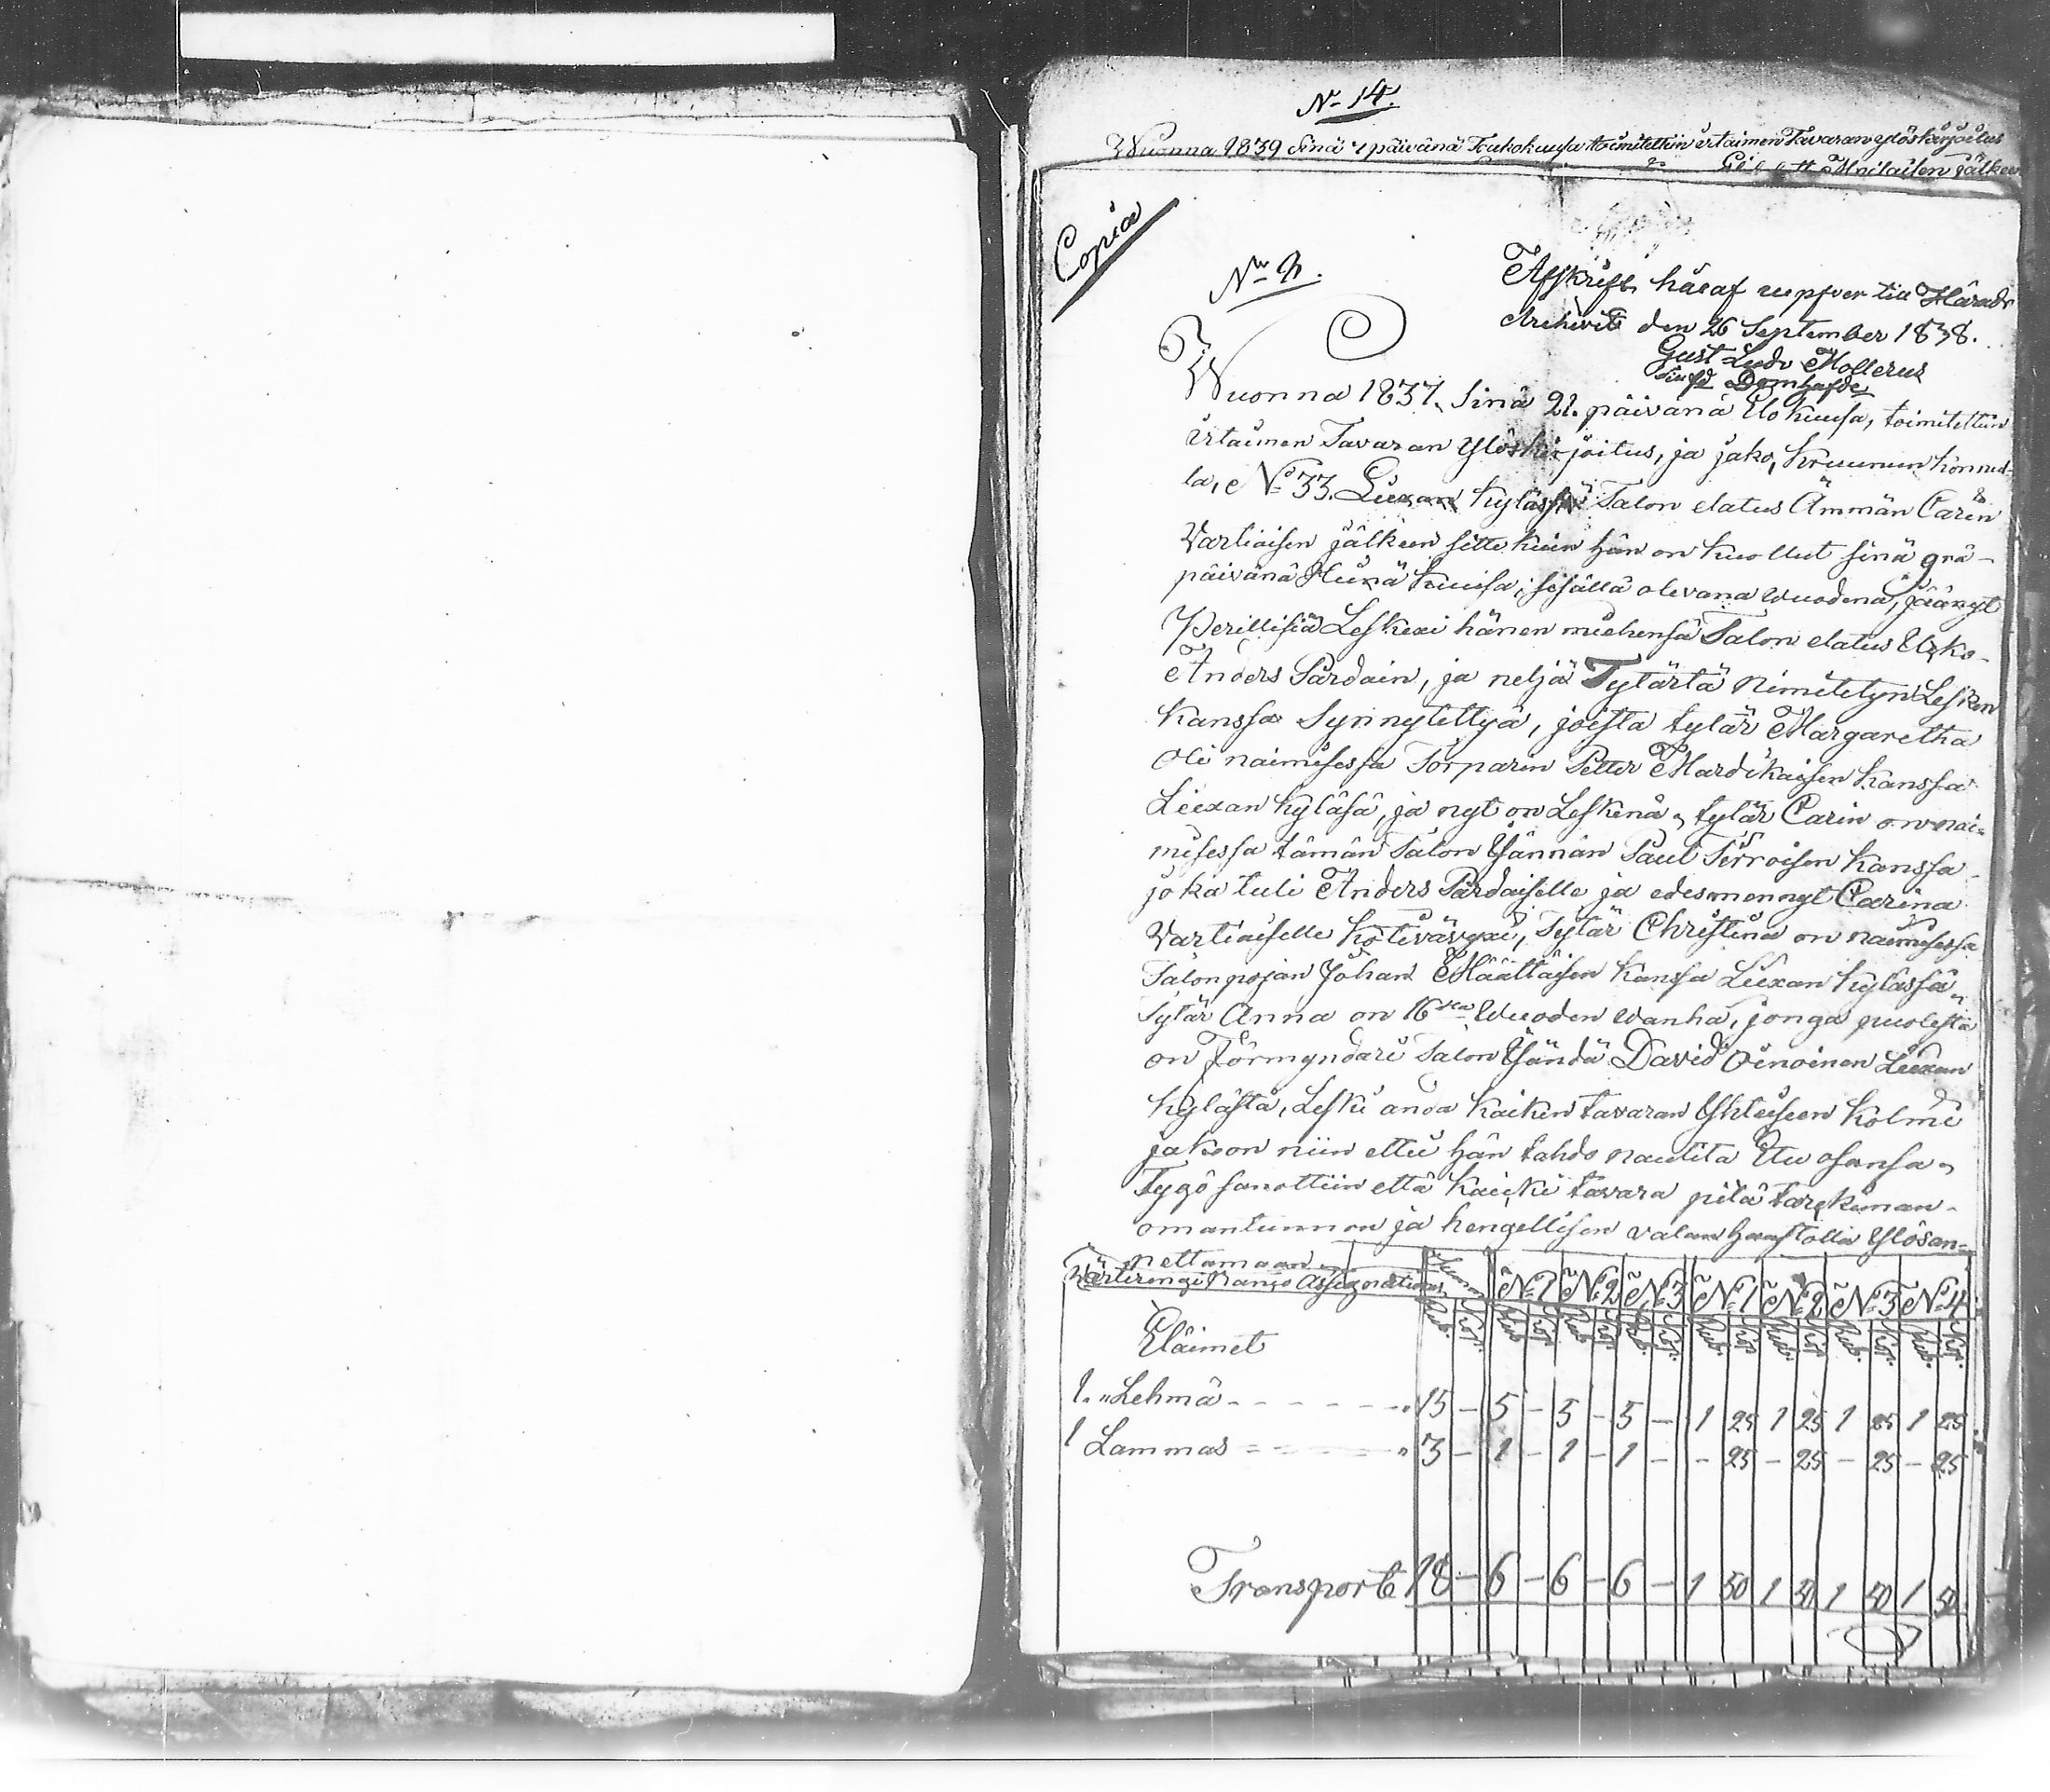 No 14.
Wuonna 1839 Sinä päivänä Toukokuusa toimitettiin irtaimen Tavaran ylöskirjoitus
jälken
Copia
No 2.
Afskrift häraf
Archivet den 26 September 1838.
Gust Ludv Mollerus
Wuonna 1837, Sinä 21. päivänä Elokuusa, toimitettiin
irtaimen Tavaran Ylöskirjoitus, ja jako, Kruunun
la, No 33. Liexan kylässä Talon elatus Ämmän Carin
Vartiaisen jälkeen sitte kuin hän on kuollut sinä
päivänä Heinä kuusa, sisällä olevana wuodena, jäänyt
Perillisiä Leskexi hänen miehensä Talon elatus Ukko
Anders Pardain, ja neljä Tytärtä nimitetyn Lesken
kanssa Synnytettyä, joista tytär Margaretha
oli naimisessa Torparin Petter Mardikaisen kanssa
Liexan kyläsä, ja nyt on Leskenä, tytär Carin on nai=
misessa tämän Talon Isännän Paul Terroisen kanssa
joka tuli Anders Pardaiselle ja edesmennyt Carina
Vartiaiselle kotivävyxi, Tytär Christina on naimisessa
Talonpojan Johan Määttäisen kanssa Liexan kylässä
Tytär Anna on 16sta Wuoden wanha, jonga puolesta
on Förmyndari Talon Isändä David Oinoinen Liexan
kylästä, Leski anda kaiken tavaran Yhteiseen kolmi
jakoon niin ettei hän tahdo nautita Etu osansa,
Tygö sanottiin että kaicki tavara pitä tarckiman
omantunnon ja hengellisen valan haastolla Ylösan=
nettamaan
Assignationis Summa No 1 No 2 No 3 No 1 No 2 No 3 No 4
Rub. Kop. Rub. Kop. Rub. Kop. Rub. Kop. Rub. Kop. Rub. Kop. Rub. Kop. Rub. Kop.
Eläimet
1. Lehmä - - - - - - 15 - 5 - 5 - 5 - 1 25 1 25 1 25 1 25
1 Lammas - - - - 3 - 1 - 1 - 1 - - 25 - 25 - 25 - 25
Transport 18 - 6 - 6 - 6 - 1 50 1 50 1 50 1 50